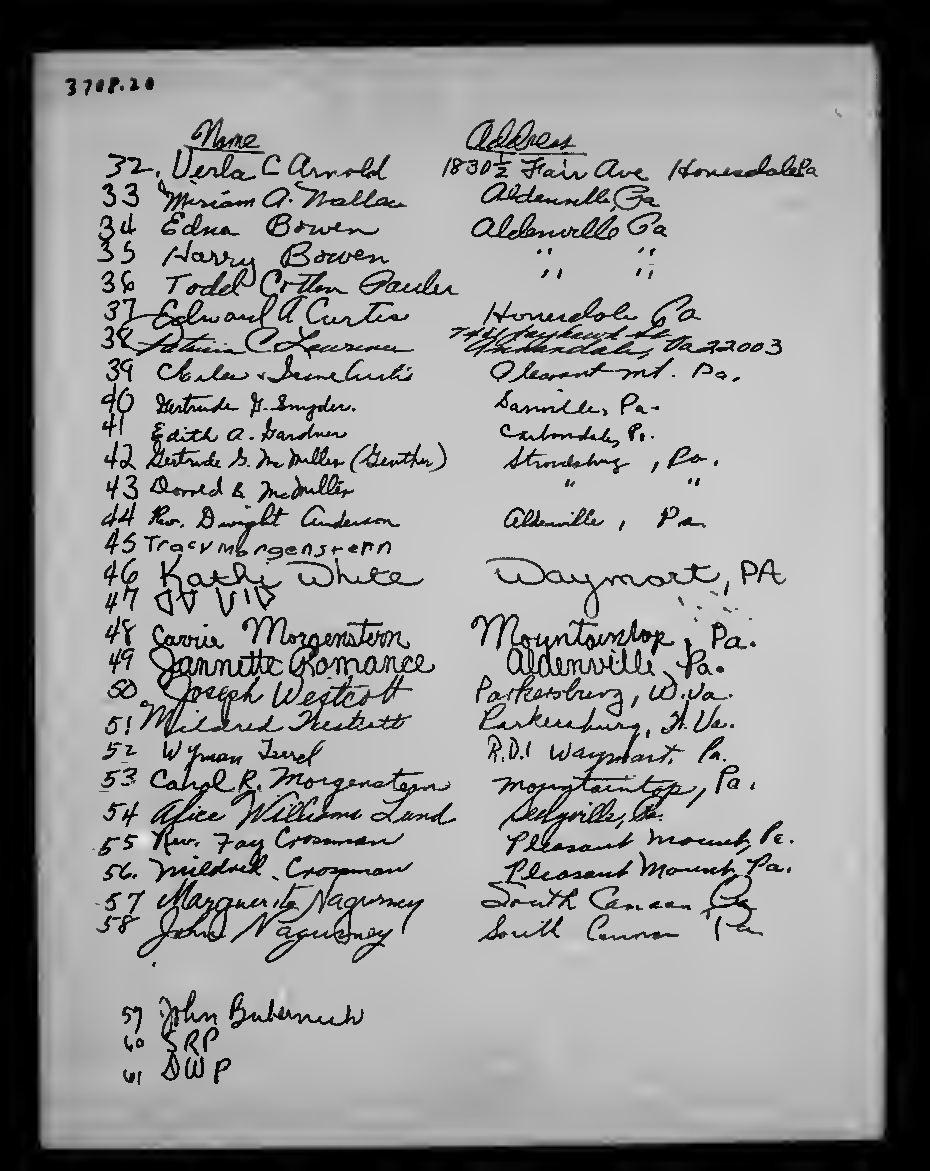 3708.20
Name Address
32. Verla C Arnold 1830½ Fair Ave Honesdale Pa
33 Miriam A. Wallace Aldenville, Pa
34 Edna Bowen Aldenville, Pa
35 Harry Bowen " "
36 Todd Cotton " "
37 Edward A Curtis Honesdale Pa
38 Patricia C. Lawrence Annandale, Va 22003
39 Charles & Irene Curtis Pleasant Mt. Pa.
40 Gertrude G. Snyder. Pa.
41 Edith A. Gardner Carbondale, Pa.
42 Gertrude G. McMillen (Genther) Stroudsburg, Pa.
43 Donald E McMillen " "
44 Rev. Dwight Anderson Aldenville, Pa.
45 Tracy Morgenstern
46 Kathi White Waymart, PA
47
48 Carrie Morgenstern Mountaintop, Pa.
49 Jannette Romance Aldenville, Pa.
50 Joseph Westcott Parkersburg, W.Va.
51 Mildred Parkersburg, W.Va.
52 Wyman R.D.1 Waymart, Pa.
53 Carol R. Morgenstern Mountaintop, Pa.
54 Alice Williams Lund Pa.
55 Rev. Fay Crossman Pleasant Mount, Pa.
56. Mildred Crossman Pleasant Mount, Pa.
57 Marguerite Nagurney South Canaan Pa
58 John Nagurney South Canaan Pa
59 John
60 SRP
61 DWP